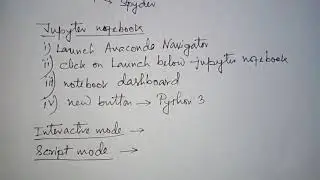 → Spyder
Jupyter notebook
i) Launch Anaconda Navigator
ii) click on Launch below jupyter notebook
iii) notebook dashboard
iv) new button → Python 3
Interactive mode →
Script mode →